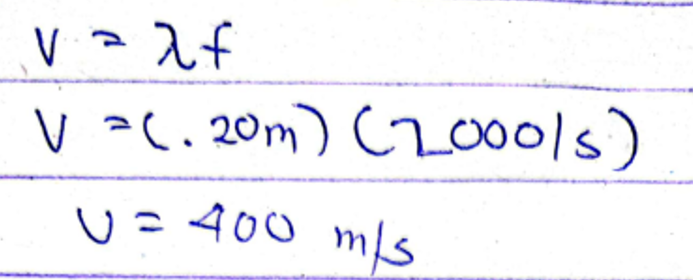 v = λf
v = (.20m) (2000/s)
v = 400 m/s